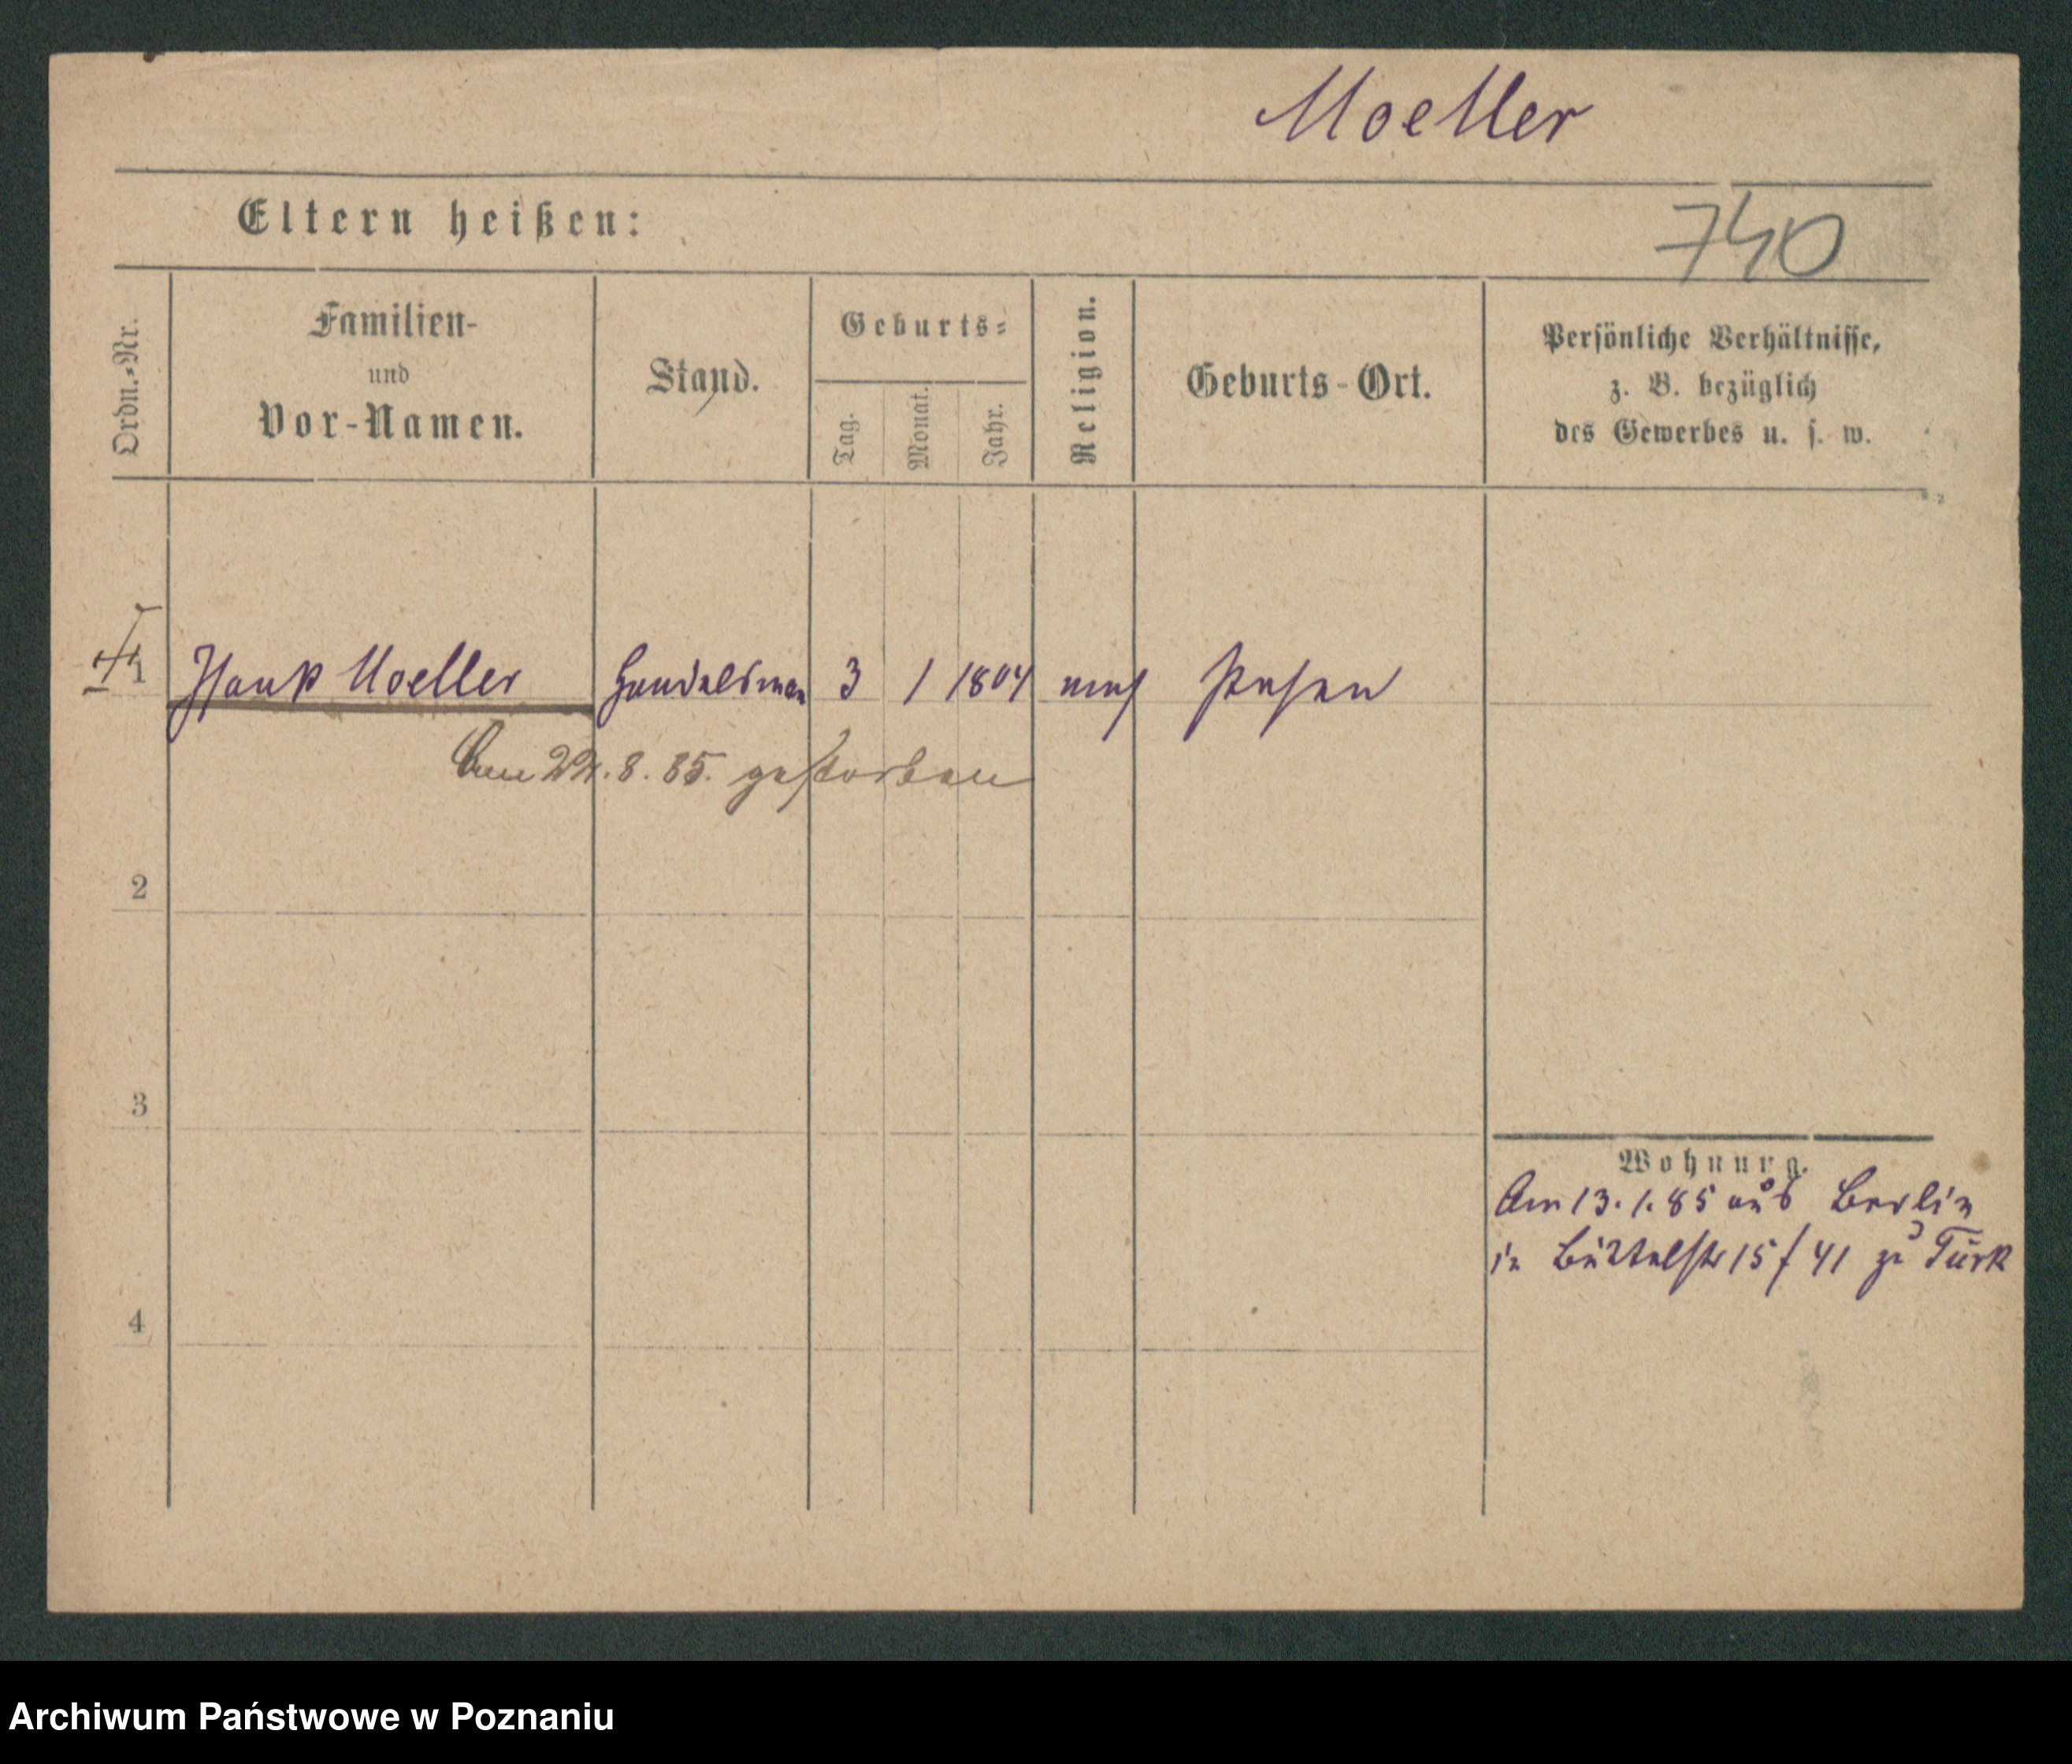 Moeller
Eltern heißen:
740
Ordn.-Nr.
Familien-
und
Vor-Namen.
Stand.
Geburts-
Tag.
Monat.
Jahr.
Religion.
Geburts-Ort.
Persönliche Verhältnisse,
z. B. bezüglich
des Gewerbes u. s. w.
1 Moeller Handelsman 3 1 1804 mos Posen
22.8.85. gestorben
2
3
Wohnung.
Am 13.1.85 aus Berlin
in Büttelstr 15/41 zu Türk
4
Archiwum Państwowe w Poznaniu